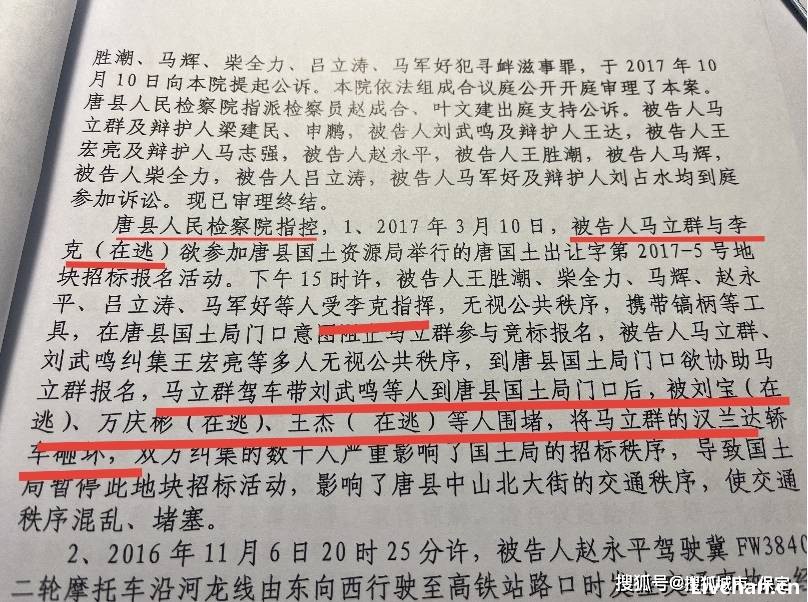 胜潮、马辉、柴全力、吕立涛、马军好犯寻衅滋事罪，于 2017 年 10
月 10 日向本院提起公诉。本院依法组成合议庭公开开庭审理了本案。
唐县人民检察院指派检察员赵成合、叶文建出庭支持公诉。被告人马
立群及辩护人梁建民、申鹏，被告人刘武鸣及辩护人王达，被告人王
宏亮及辩护人马志强，被告人赵永平，被告人王胜潮，被告人马辉，
被告人柴全力，被告人吕立涛，被告人马军好及辩护人刘占水均到庭
参加诉讼。现已审理终结。
唐县人民检察院指控，1、2017 年 3 月 10 日，被告人马立群与李
克（在逃）欲参加唐县国土资源局举行的唐国土出让字第 2017-5 号地
块招标报名活动。下午 15 时许，被告人王胜潮、柴全力、马辉、赵永
平、吕立涛、马军好等人受李克指挥，无视公共秩序，携带镐柄等工
具，在唐县国土局门口意图阻止马立群参与竞标报名，被告人马立群、
刘武鸣纠集王宏亮等多人无视公共秩序，到唐县国土局门口欲协助马
立群报名，马立群驾车带刘武鸣等人到唐县国土局门口后，被刘宝（在
逃）、万庆彬（在逃）、王杰（ 在逃）等人围堵，将马立群的汉兰达轿
车砸坏，双方纠集的数十人严重影响了国土局的招标秩序，导致国土
局暂停此地块招标活动，影响了唐县中山北大街的交通秩序，使交通
秩序混乱、堵塞。
2、2016 年 11 月 6 日 20 时 25 分许，被告人赵永平驾驶冀 FW3840
二轮摩托车沿河龙线由东向西行驶至高铁站路口时发生
搜狐号@搜狐城市-保定
LivChan.cn